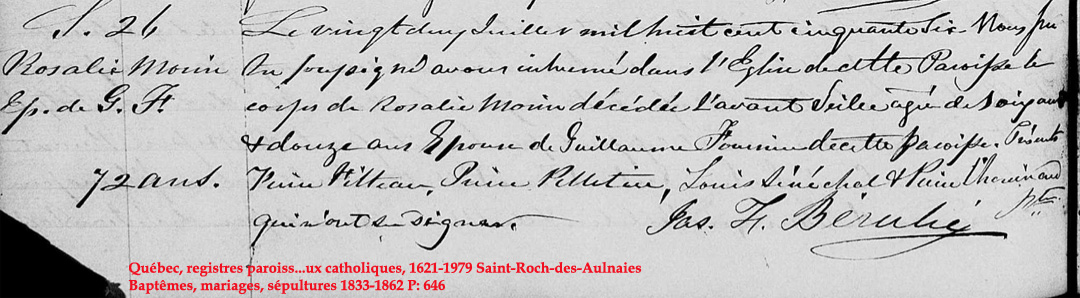 S. 26
Rosalie Morin
Ep. de G. F.
72 ans.
Le vingt deux Juillet mil huit cent cinquante six Nous
soussigné avons inhumé dans l'Eglise de cette Paroisse le
corps de Rosalie Morin décédée l'avant Veille agée de soixante
& douze ans Epouse de Guillaume Fournier de cette paroisse. Présents
Pierre Pelletier, Louis Sénéchal & Pierre Chouinard
qui n'ont su signer.
Jos. H. Bérubé
Ptre
Québec, registres paroiss...ux catholiques, 1621-1979 Saint-Roch-des-Aulnaies
Baptêmes, mariages, sépultures 1833-1862 P: 646